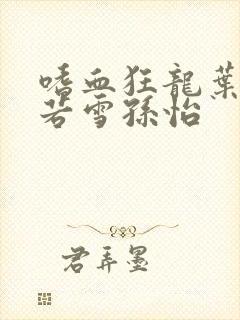 嗜血狂龍葉
若雪孫怡
君弄墨